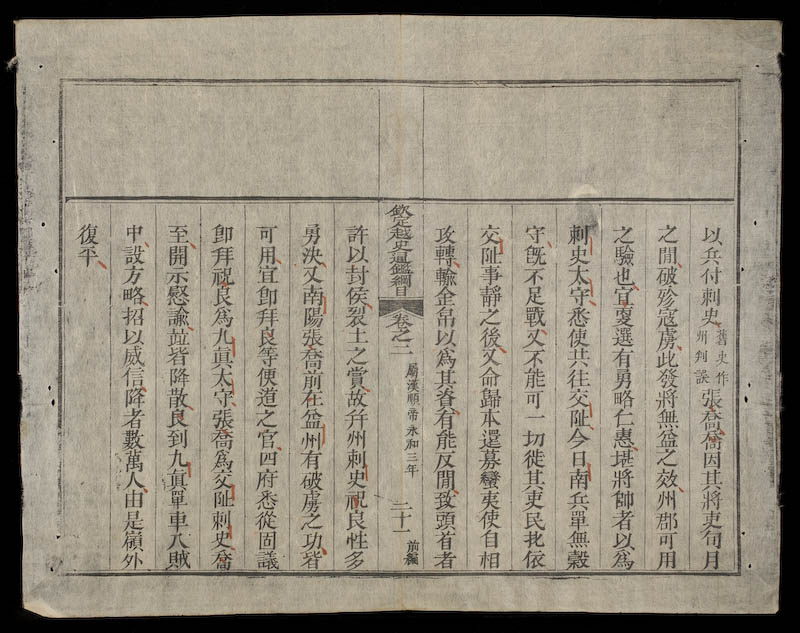 以兵付刺史舊史作州判誤張喬喬因其將吏旬月
之閒破殄寇虜此發將無益之效州郡可用
之驗也宜更選有勇略仁惠堪將帥者以爲
刺史太守悉使共往交阯今日南兵單無穀
守旣不足戰又不能可一切徙其吏民北依
交阯事靜之後又命歸本還募蠻夷使自相
攻轉輸金帛以爲其資有能反閒致頭首者
欽定越史通鑑綱目 卷之二 屬漢順帝永和三年 二十一 前編
許以封侯裂土之賞故幷州刺史祝良性多
勇決又南陽張喬前在益州有破虜之功皆
可用宜卽拜良等便道之官四府悉從固議
卽拜祝良爲九眞太守張喬爲交阯刺史喬
至開示慰諭竝皆降散良到九眞單車入賊
中設方略招以威信降者數萬人由是嶺外
復平